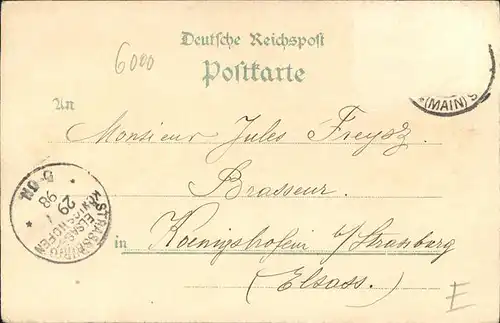 Deutsche Reichspost
6000
Postkarte
(MAIN) 9
An
Monsieur Jules Freysz.
Brasseur.
in Koenigshofen s/Strasburg
(Elsass.)
STRASSBURG
KÖNIGSHOFEN
ELSASS
29 1
98
E